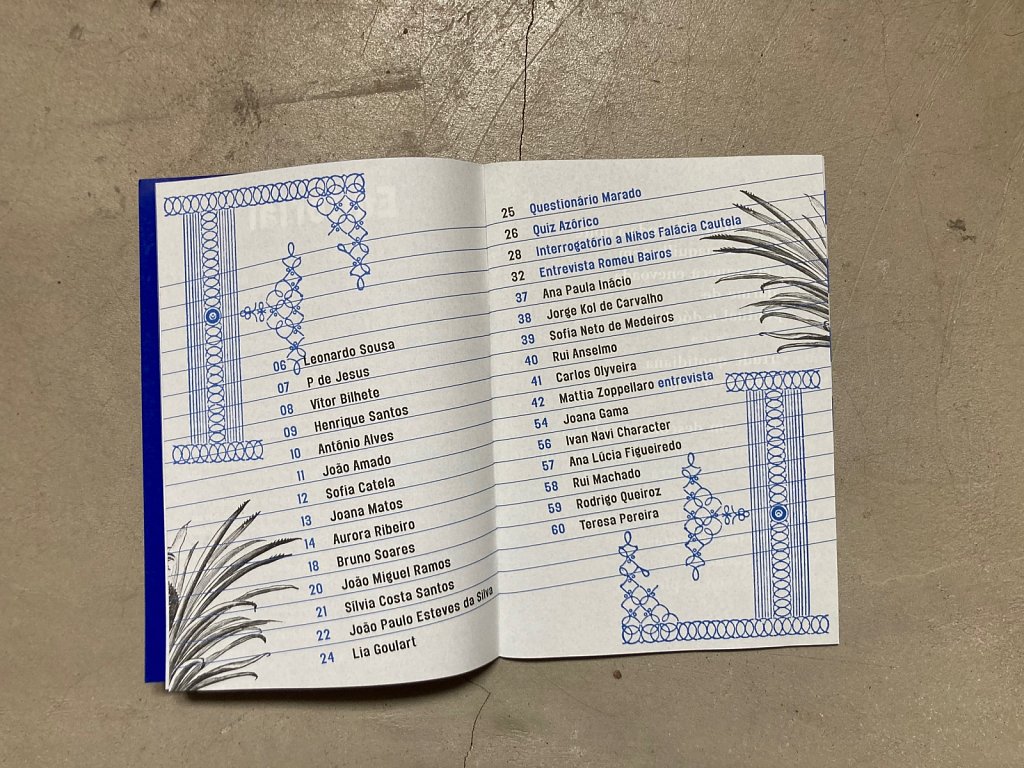 06 Leonardo Sousa
07 P de Jesus
08 Vítor Bilhete
09 Henrique Santos
10 Antônio Alves
11 João Amado
12 Sofia Catela
13 Joana Matos
14 Aurora Ribeiro
18 Bruno Soares
20 João Miguel Ramos
21 Sílvia Costa Santos
22 João Paulo Esteves da Silva
24 Lia Goulart
25 Questionário Marado
26 Quiz Azórico
28 Interrogatório a Nikos Falácia Cautela
32 Entrevista Romeu Bairos
37 Ana Paula Inácio
38 Jorge Kol de Carvalho
39 Sofia Neto de Medeiros
40 Rui Anselmo
41 Carlos Olyveira
42 Mattia Zoppellaro entrevista
54 Joana Gama
56 Ivan Navi Character
57 Ana Lúcia Figueiredo
58 Rui Machado
59 Rodrigo Queiroz
60 Teresa Pereira